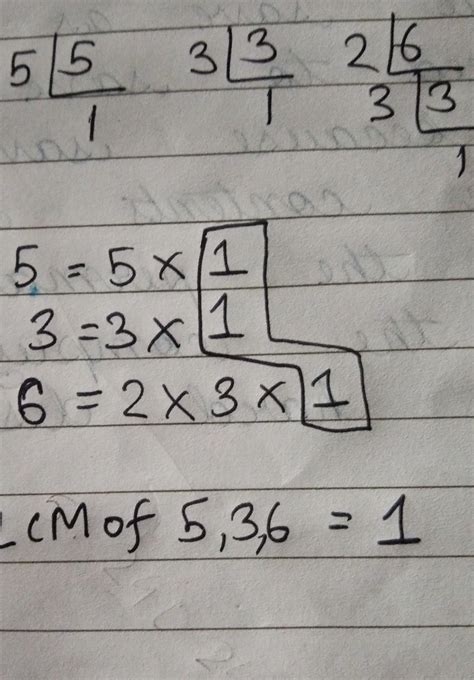 5 5 3 3 2 6
1 1 3 3
1
5 = 5 × 1
3 = 3 × 1
6 = 2 × 3 × 1
LCM of 5,3,6 = 1